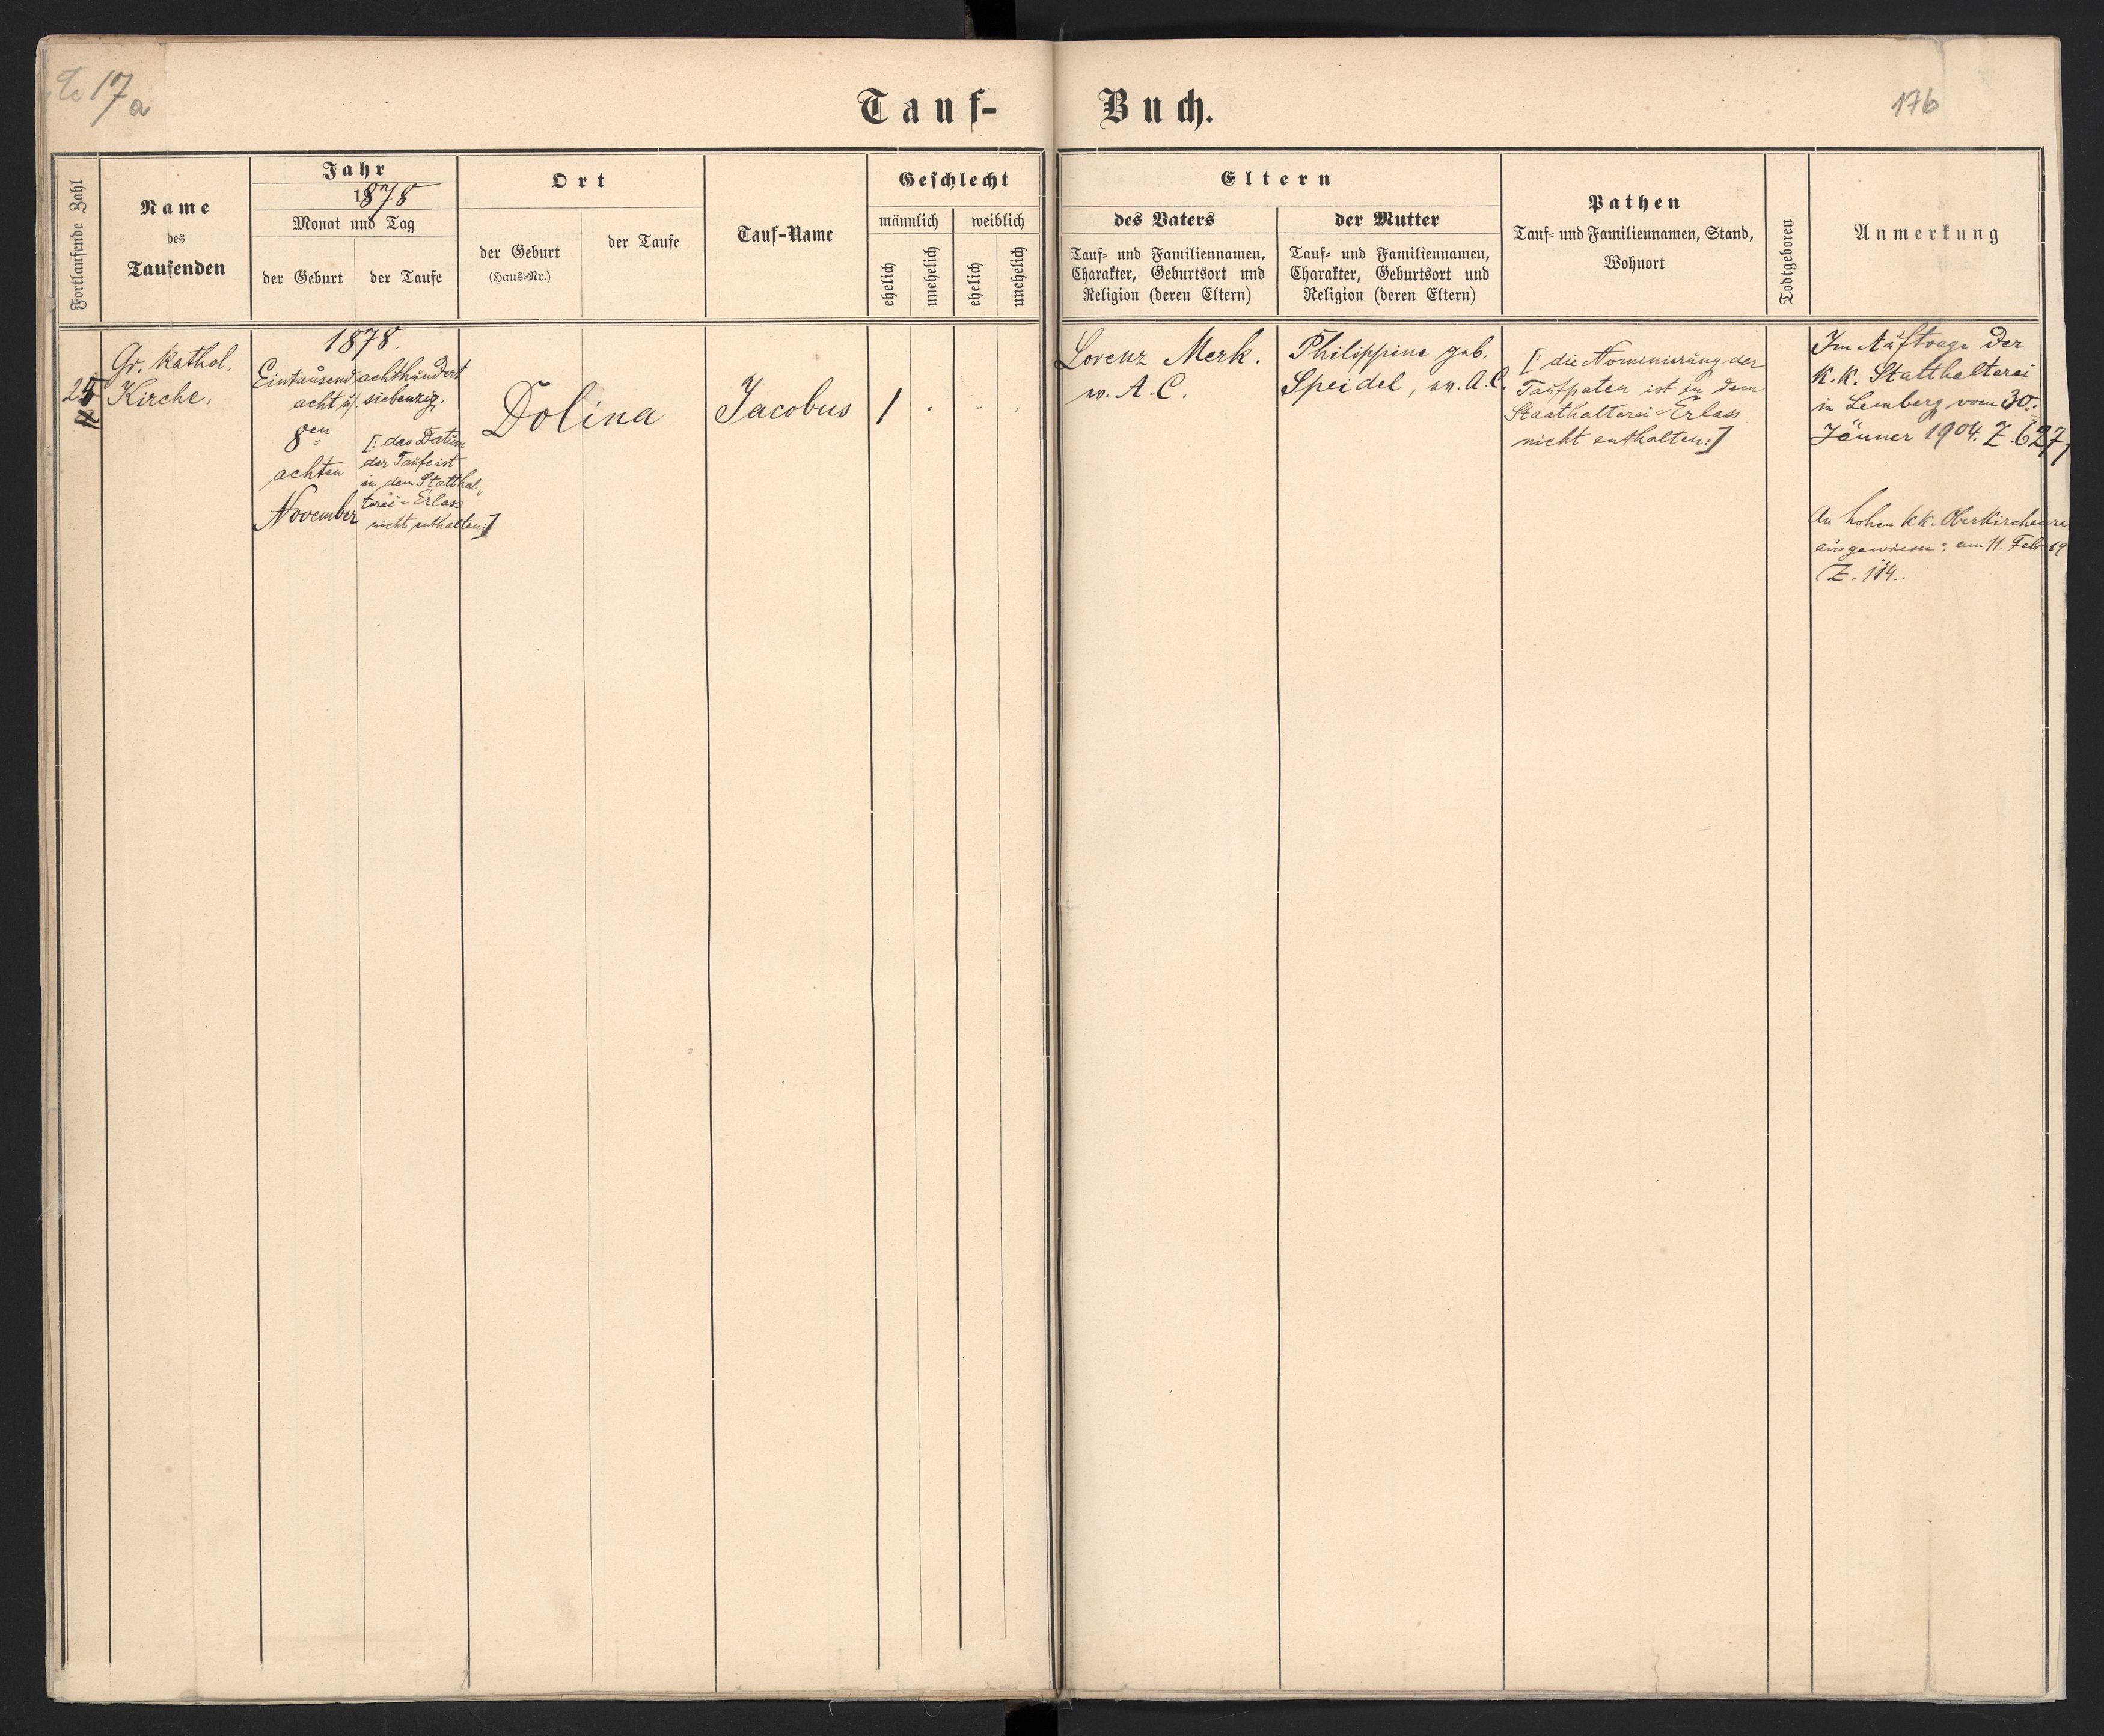 17 a
Tauf-
Buch.
17b
Fortlaufende Zahl
Name
des
Taufenden
Jahr
1878
Monat und Tag
der Geburt
der Taufe
Ort
der Geburt
(Haus-Nr.)
der Taufe
Tauf-Name
Geschlecht
männlich
weiblich
ehelich
unehelich
ehelich
unehelich
Eltern
des Vaters
Tauf- und Familiennamen,
Charakter, Geburtsort und
Religion (deren Eltern)
der Mutter
Tauf- und Familiennamen,
Charakter, Geburtsort und
Religion (deren Eltern)
Pathen
Tauf- und Familiennamen, Stand,
Wohnort
Todtgeboren
Anmerkung
25
Gr. kathol.
Kirche.
1878.
Eintausend achthundert
acht u. siebenzig.
8ten
achten
November
[: das Datum
der Taufe ist
in dem Statthal„
terei=Erlass
nicht enthalten:]
Dolina
Jacobus
1
Lorenz Merk.
ev. A. C.
Philippine geb.
Speidel, ev. A. C.
[: die Nominierung der
Taufpaten ist in dem
Staathalterei=Erlass
nicht enthalten:]
Im Auftrage der
k. k. Statthalterei
in Lemberg vom 30.
Jänner 1904. Z. 6271
An hohen kk. Oberkirchenra
am 11. Febr 19
Z. 114..